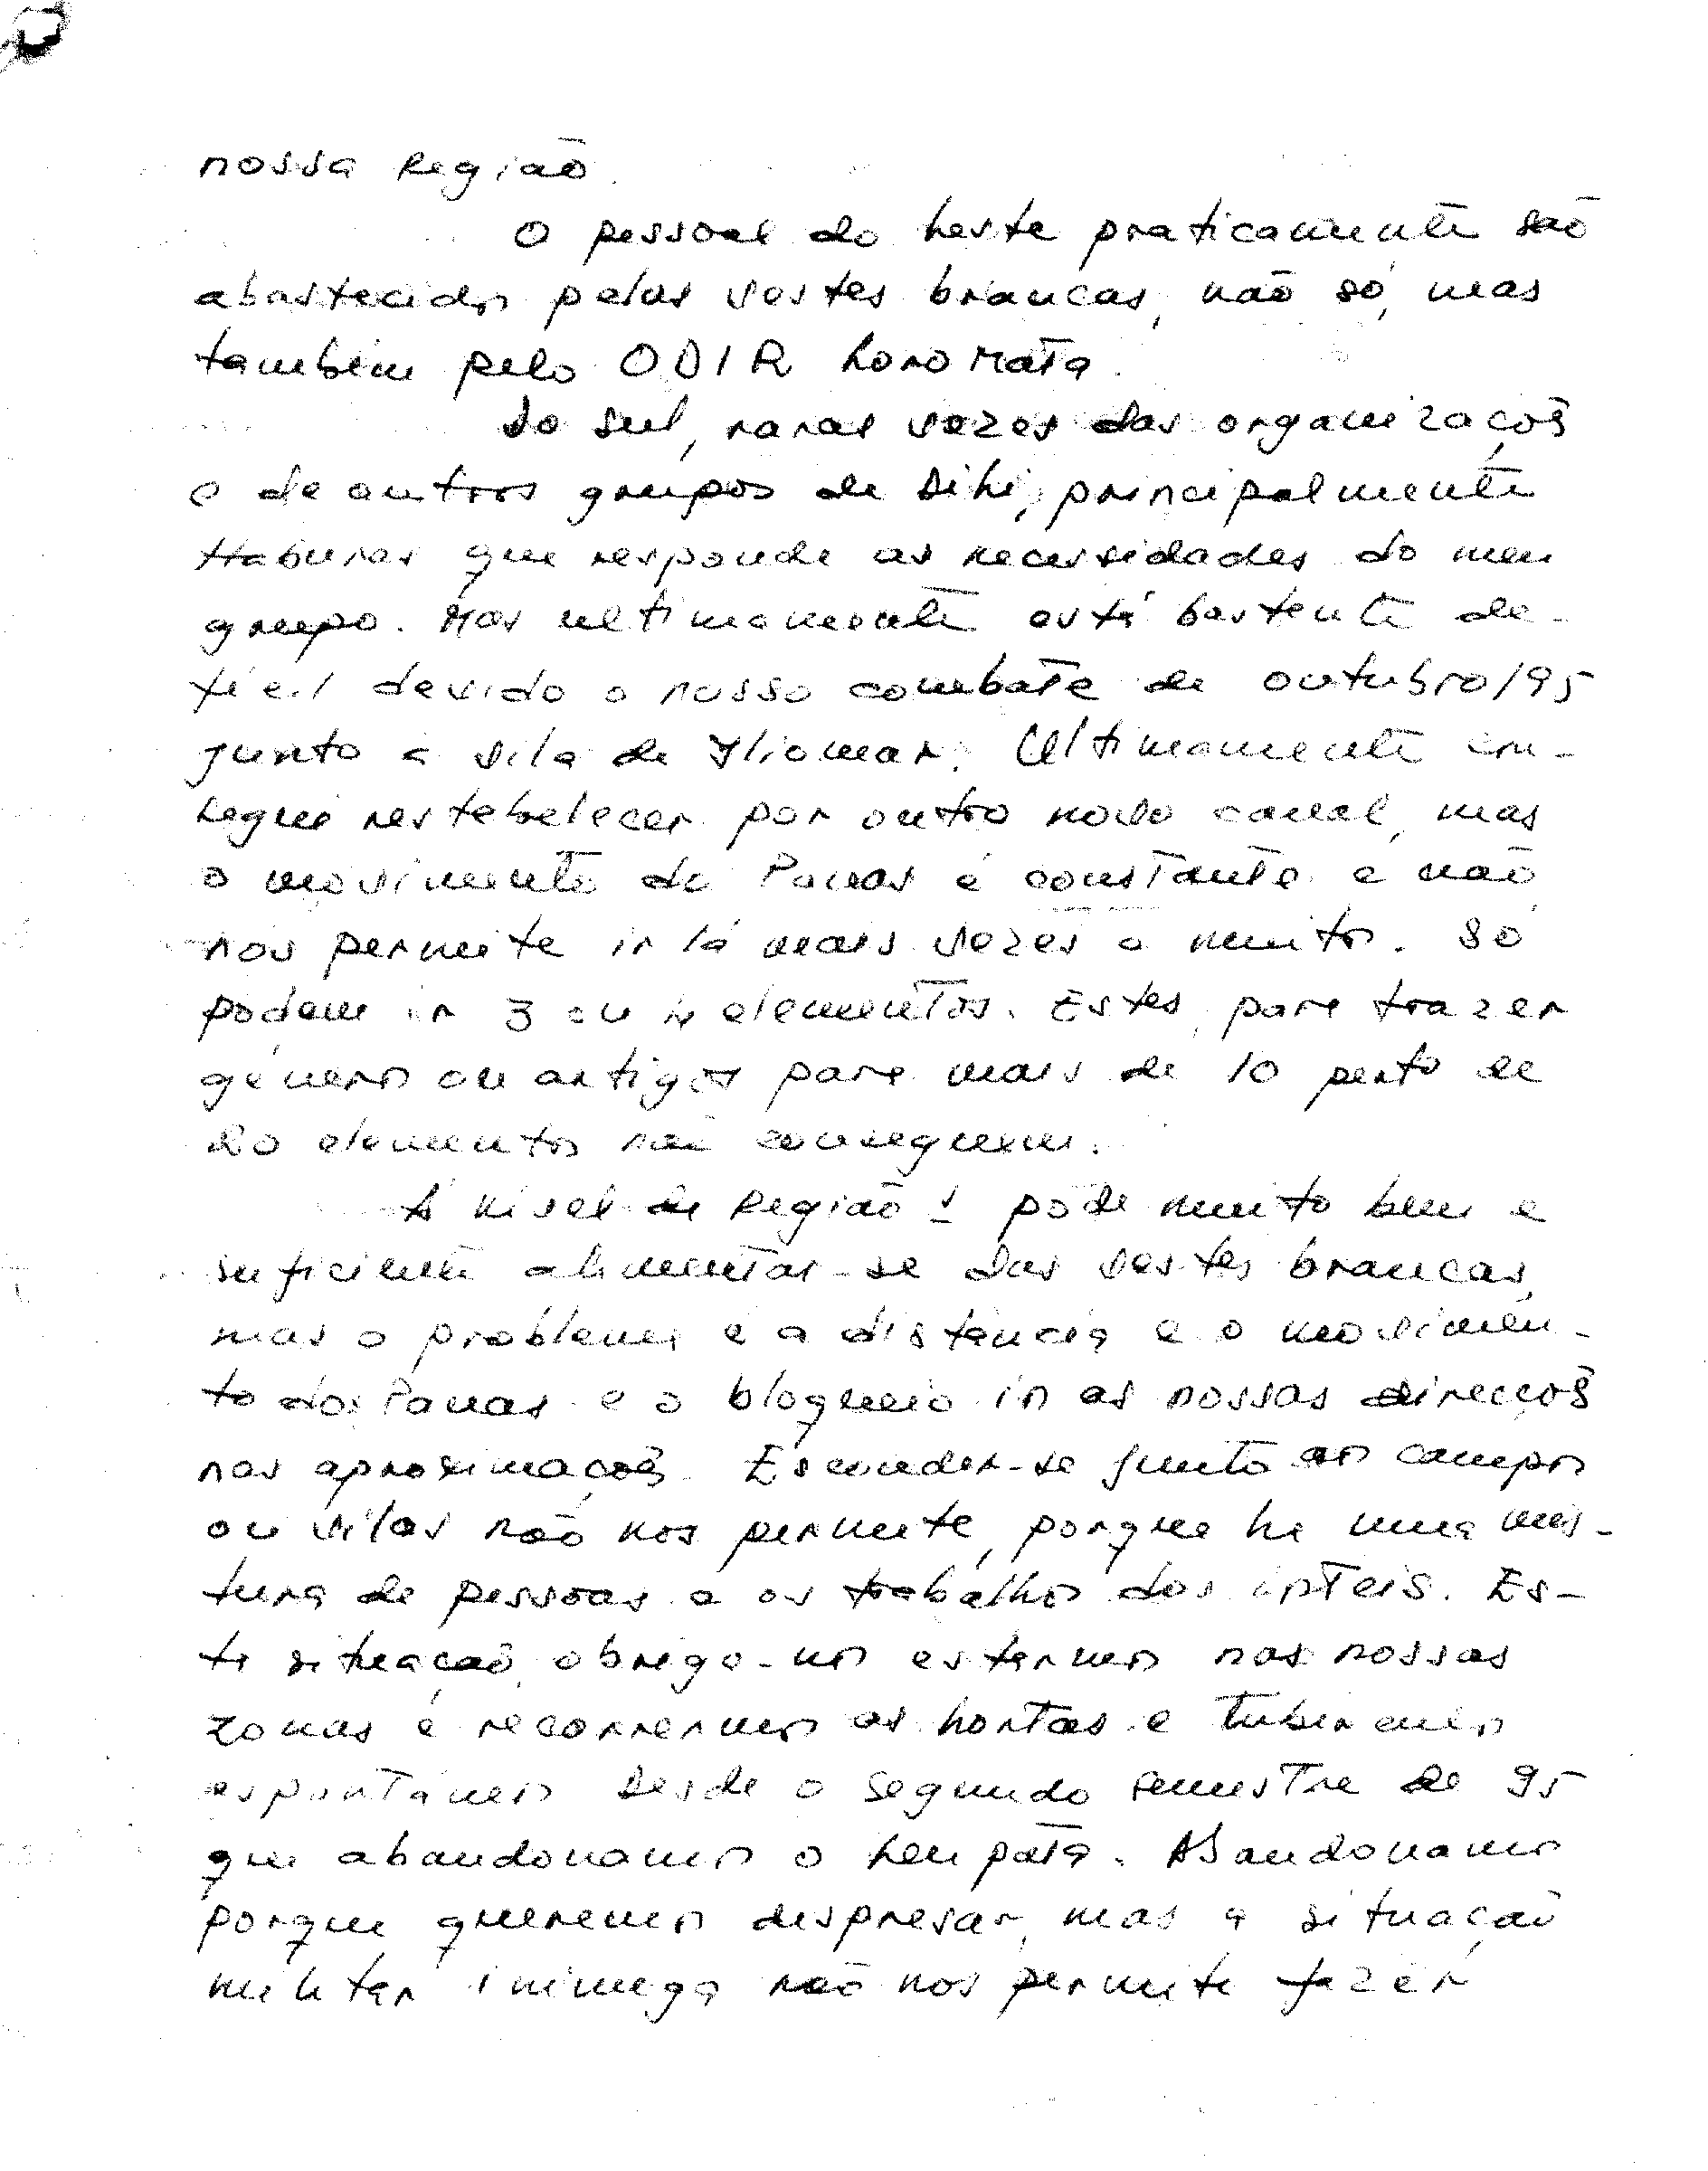 nossa Região.
O pessoal do Leste praticamente são
abastecidos pelas vestes brancas, não só, mas
também pelo ODIR Loro Mata.
Do Sul, raras vezes das organizaçoẽs
e de outros grupos de Dili, principalmente
Haburas que responde as necessidades do meu
grupo. Mas ultimamente está bastente de-
fícil devido o nosso combate de outubro/95
junto a vila de Iliomar. Ultimamente con-
segui restebelecer por outro novo canal, mas
o movimento do Panas é constante e não
nos permite ir lá mais vezes e muitos. Só
podem ir 3 ou 4 elementos. Estes, para trazer
géneros ou artigos para mais de 10 perto de
20 elementos não conseguem.
A nível de Região: pode muito bem e
suficiente alimentar-se das vestes brancas,
mas o problema é a distancia e o movimen-
to dos Panas e o bloqueio in as nossas direcçoẽs
nas aproximaçoẽs. Esconder-se junto aos campos
ou vilas não nos permite, porque ha uma mis-
tura de pessoas e os trabalhos dos inteis. Es-
ta situação, obriga-nos estarmos nas nossas
zonas e recorrermos as hortas e tuberculos
espontáneos. Desde o segundo semestre de 95
que abandonamos o Leu pata. Abandonamos
porque queremos despresar, mas a situação
militar inimiga não nos permite fazer